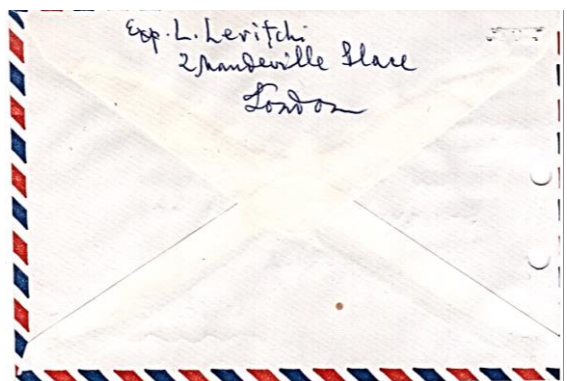 Exp. L. Levitchi
2 Mandeville Place
London